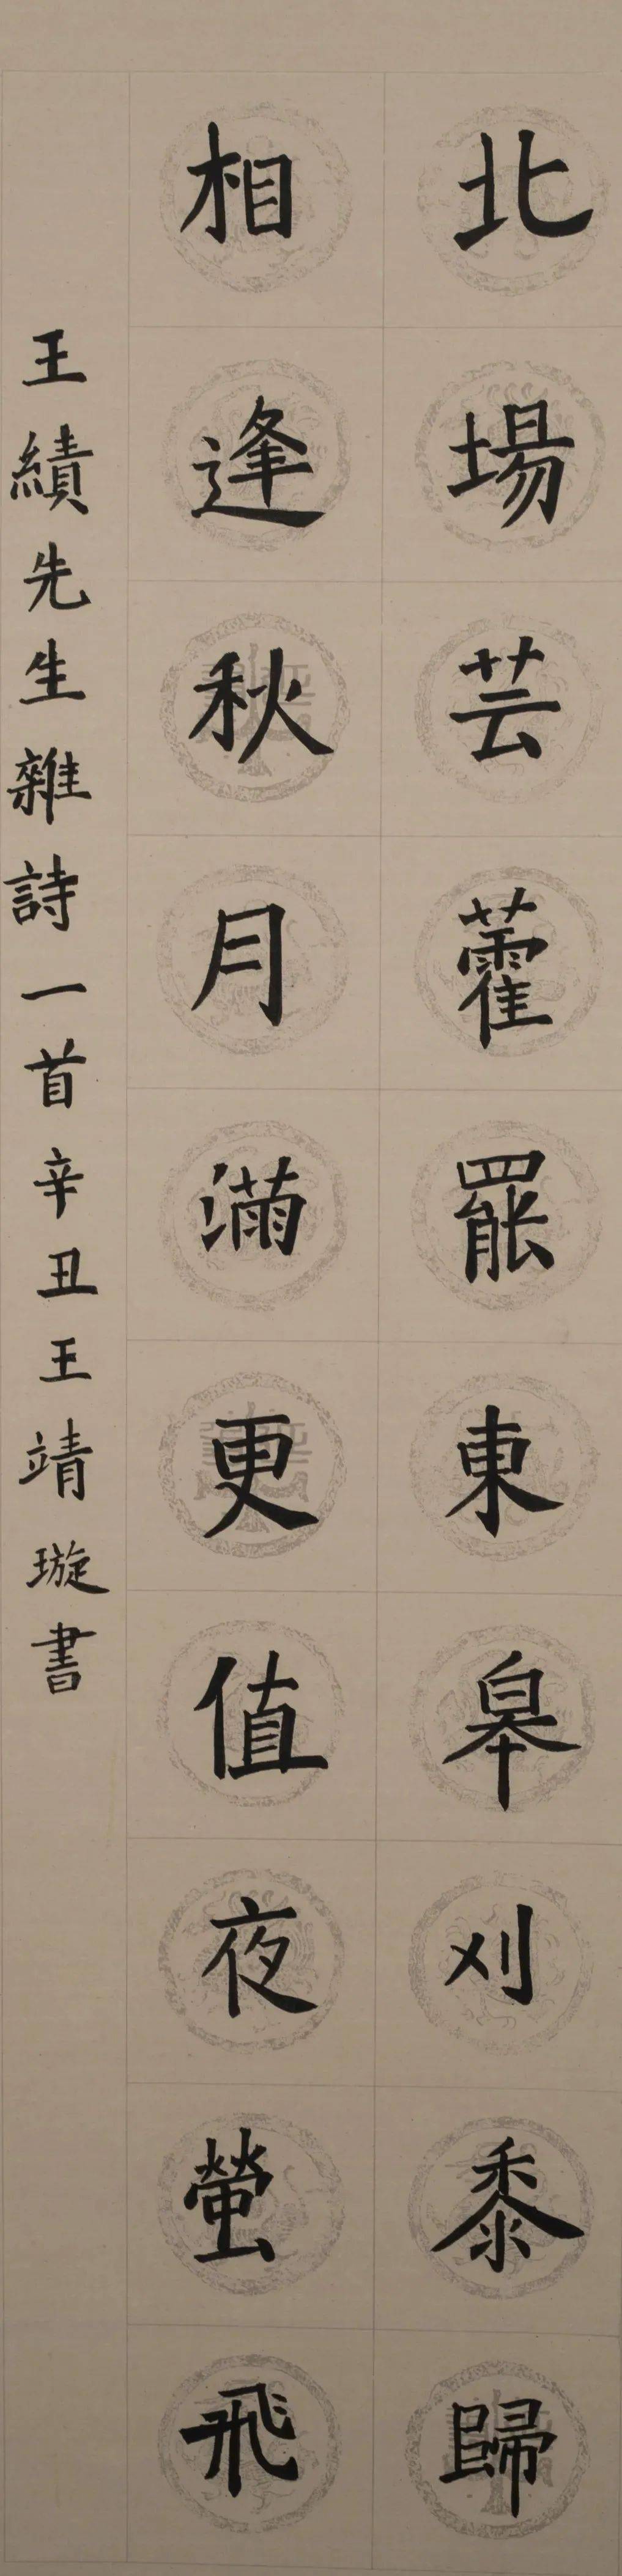 北場芸藿罷東皋刈黍歸
相逢秋月滿更值夜螢飛
王績先生雜詩一首辛丑王靖璇書